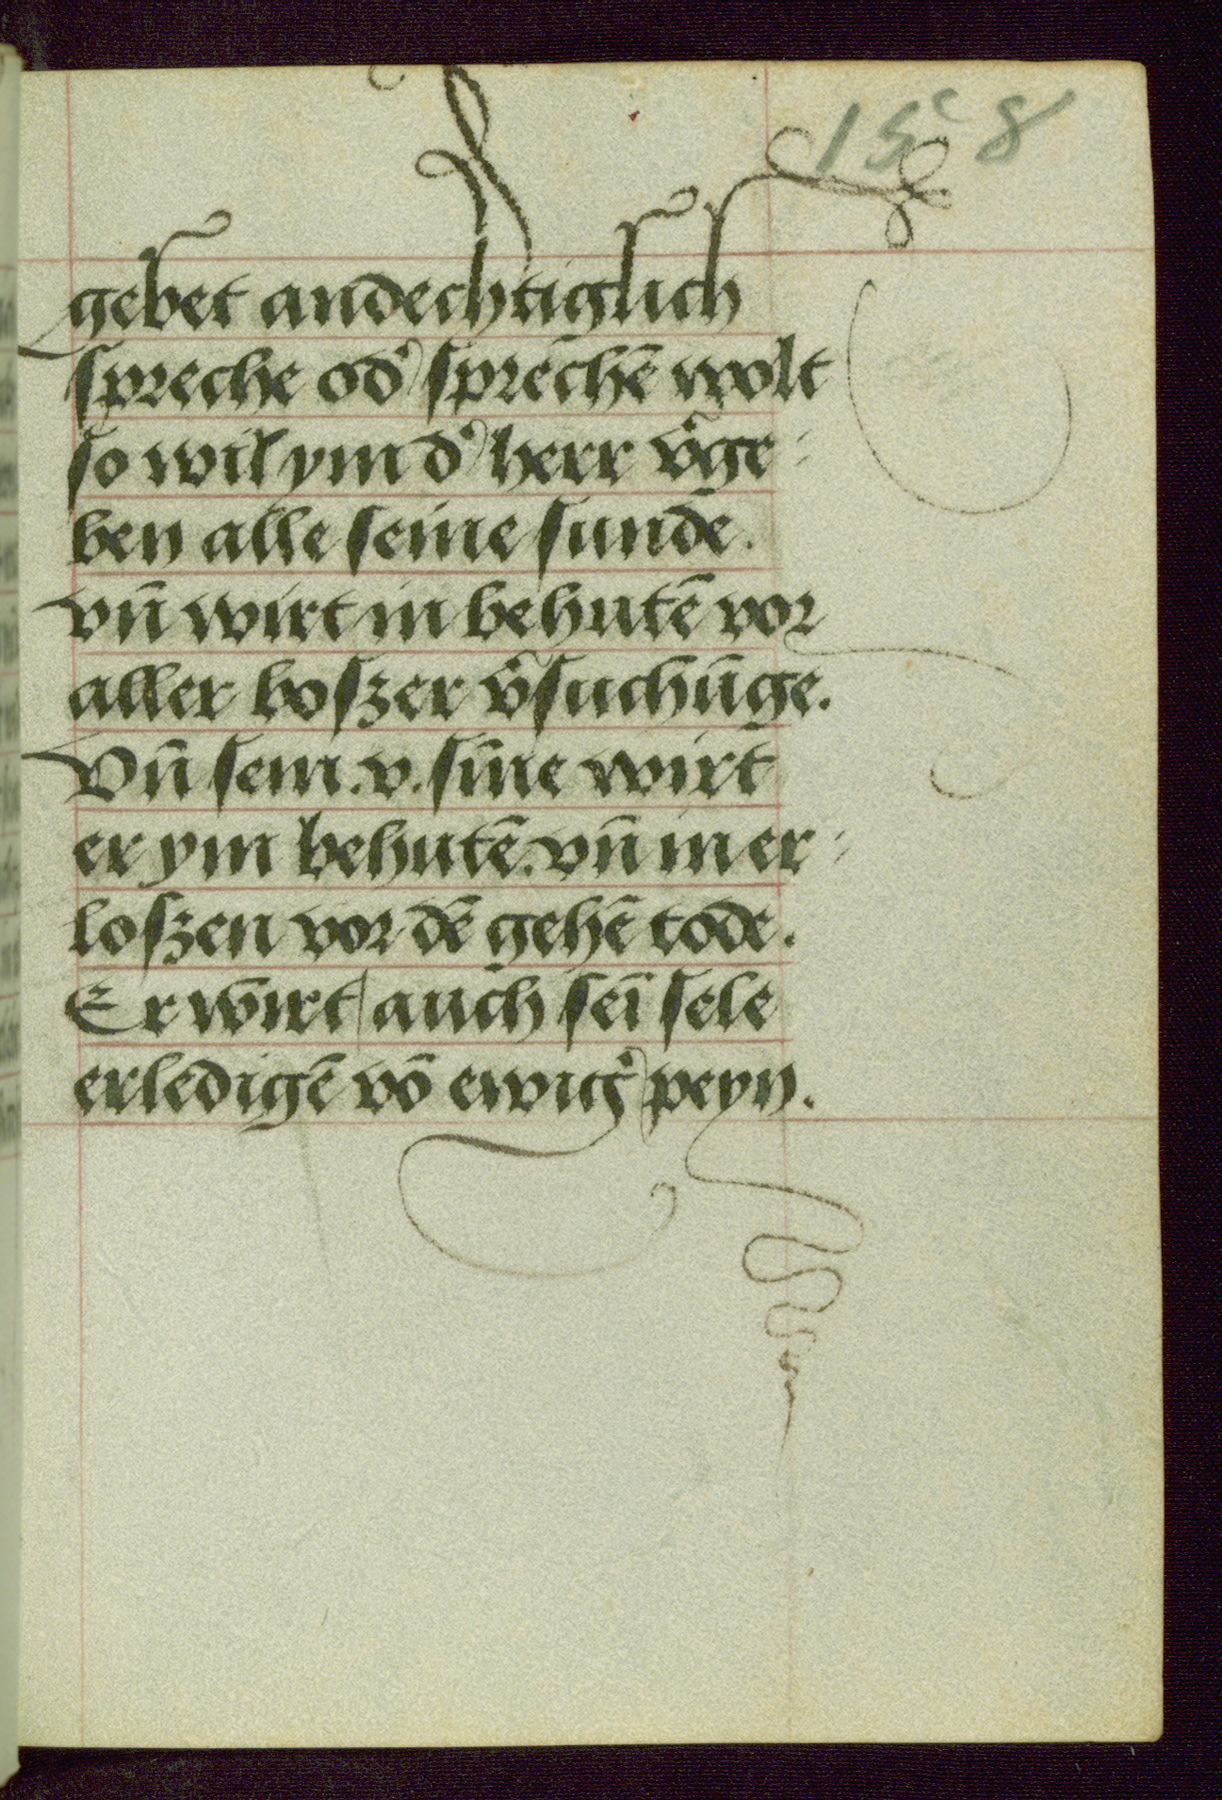 gebet andechtiglich
spreche od' sprechē wolt
so wil ym d' herr v'ge-
ben alle seine sunde.
vn̄ wirt in behutē vor
aller boszer v'suchūge.
Vn̄ sein .v. sīne wirt
er ym behutē. vn̄ in er-
loszen vor dē gehē tode.
Er wirt auch seī sele
erledigē vō ewig' peyn.